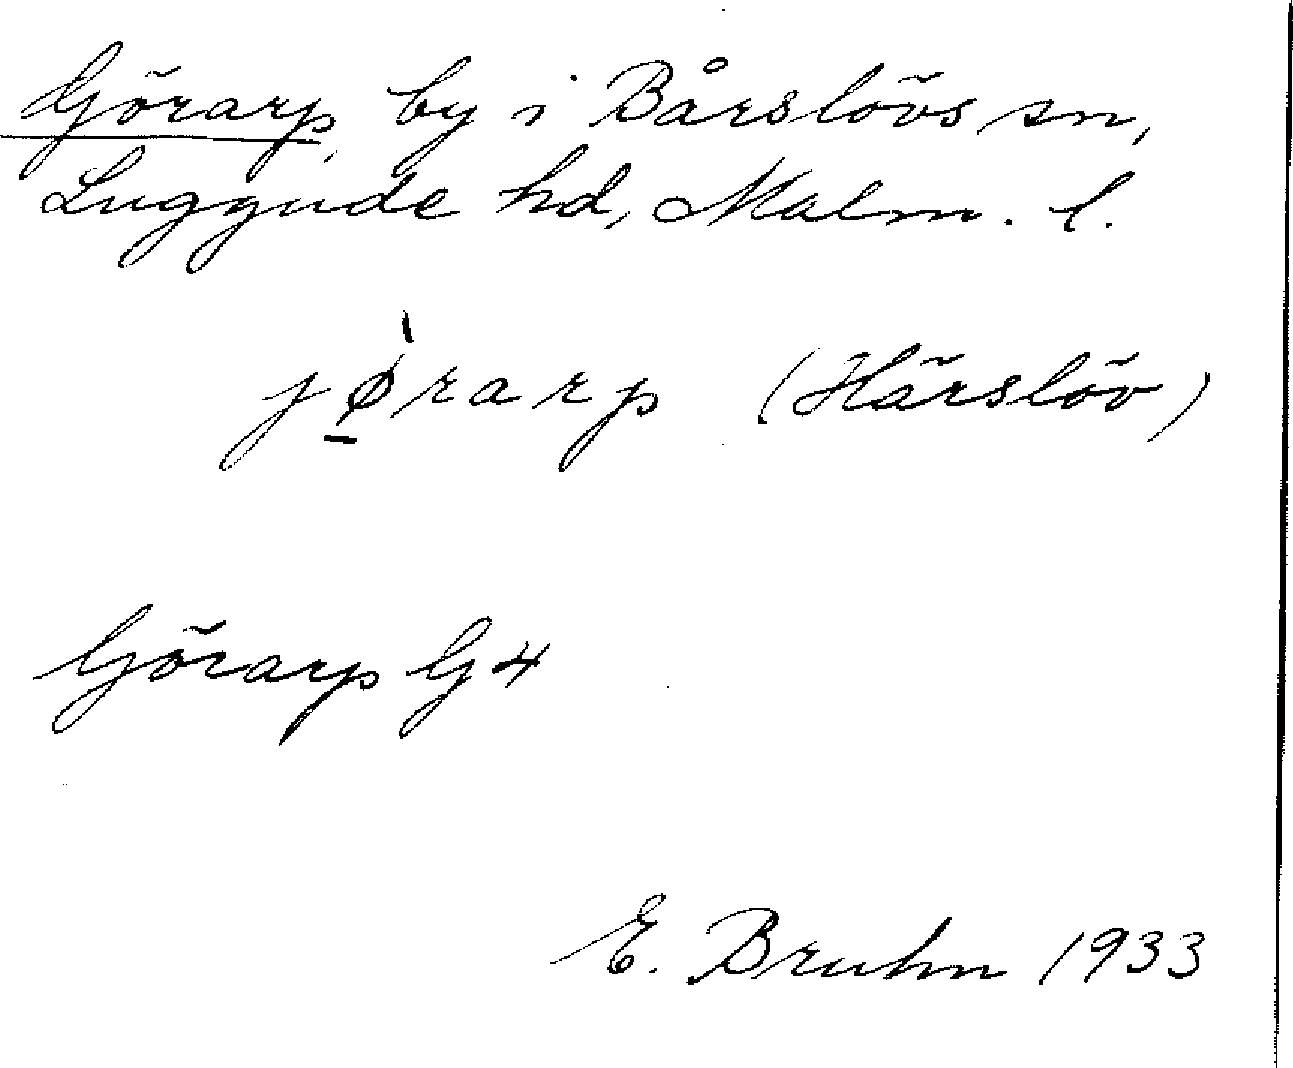 Görarp, by i Bårslövs sn,
Luggude hd, Malm. l.
jø̱̀rarp (Härslöv)
Görarp G 4
E. Bruhn 1933